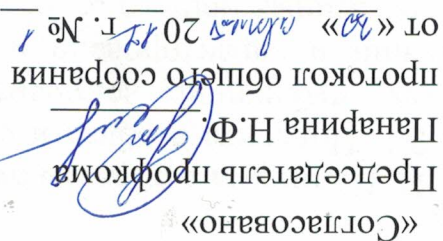 «Согласовано»
Председатель профкома
Панарина Н.Ф.
протокол общего собрания
от « » 20 г. № 1